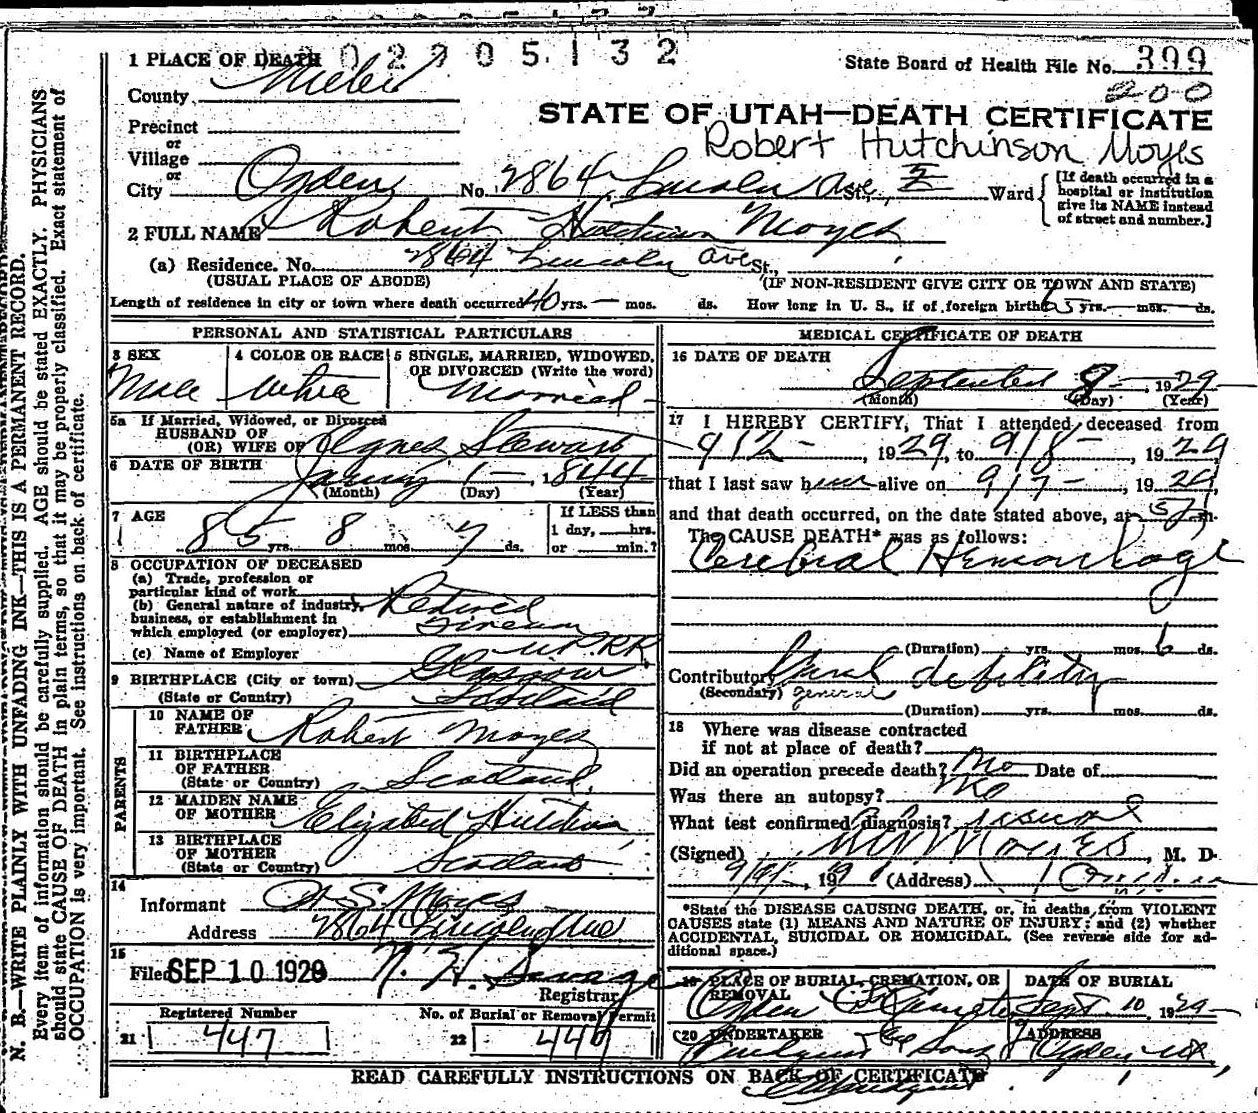 1 PLACE OF DEATH 0 2 9 0 5 1 3 2
State Board of Health File No. 399
200
County Weber
STATE OF UTAH—DEATH CERTIFICATE
Precinct
or
Robert Hutchinson Moyes
Village
or
City Ogden No. 2864 Lincoln Ave St., 2 Ward
[If death occurred in a hospital or institution give its NAME instead of street and number.]
2 FULL NAME Robert Hutchinson Moyes
(a) Residence. No. 2864 Lincoln Ave St.,
(USUAL PLACE OF ABODE) (IF NON-RESIDENT GIVE CITY OR TOWN AND STATE)
Length of residence in city or town where death occurred 40 yrs. — mos. ds. How long in U. S., if of foreign birth 65 yrs. — mos. ds.
PERSONAL AND STATISTICAL PARTICULARS
3 SEX
Male
4 COLOR OR RACE
White
5 SINGLE, MARRIED, WIDOWED, OR DIVORCED (Write the word)
Married
5a If Married, Widowed, or Divorced
HUSBAND OF
(OR) WIFE OF Agnes Stewart
6 DATE OF BIRTH January 1 —, 1844
(Month) (Day) (Year)
7 AGE
85 yrs. 8 mos. 7 ds.
If LESS than
1 day, hrs.
or min.?
8 OCCUPATION OF DECEASED
(a) Trade, profession or
particular kind of work
(b) General nature of industry, Retired
business, or establishment in
which employed (or employer) Fireman
(c) Name of Employer U.P.R.R.
9 BIRTHPLACE (City or town) Glasgow
(State or Country) Scotland
PARENTS
10 NAME OF
FATHER Robert Moyes
11 BIRTHPLACE
OF FATHER
(State or Country) Scotland
12 MAIDEN NAME
OF MOTHER Elizabeth Hutchison
13 BIRTHPLACE
OF MOTHER
(State or Country) Scotland
14
Informant S. Moyes
Address 2864 Lincoln Ave
15
Filed SEP 10 1929 Savage
Registrar
Registered Number
21 447
No. of Burial or Removal Permit
22 446
MEDICAL CERTIFICATE OF DEATH
16 DATE OF DEATH
September 8 —, 1929
(Month) (Day) (Year)
17 I HEREBY CERTIFY, That I attended deceased from
9/2 —, 1929, to 9/8 —, 1929
that I last saw him alive on 9/7 —, 1929,
and that death occurred, on the date stated above, at 5 m.
The CAUSE DEATH* was as follows:
Cerebral Hemorhage
(Duration) yrs. mos. 6 ds.
Contributory Genrl debility
(Secondary) general
(Duration) yrs. mos. ds.
18 Where was disease contracted
if not at place of death?
Did an operation precede death? No Date of
Was there an autopsy? No
What test confirmed diagnosis?
(Signed) , M. D.
9/9/ , 19 (Address)
*State the DISEASE CAUSING DEATH, or, in deaths from VIOLENT
CAUSES state (1) MEANS AND NATURE OF INJURY; and (2) whether
ACCIDENTAL, SUICIDAL OR HOMICIDAL. (See reverse side for ad-
ditional space.)
19 PLACE OF BURIAL, CREMATION, OR
REMOVAL
Ogden
DATE OF BURIAL
Sept 10, 1929
20 UNDERTAKER
& Sons
ADDRESS
Ogden
READ CAREFULLY INSTRUCTIONS ON BACK OF CERTIFICATE
N. B.—WRITE PLAINLY WITH UNFADING INK—THIS IS A PERMANENT RECORD.
Every item of information should be carefully supplied. AGE should be stated EXACTLY. PHYSICIANS
should state CAUSE OF DEATH in plain terms, so that it may be properly classified. Exact statement of
OCCUPATION is very important. See instructions on back of certificate.